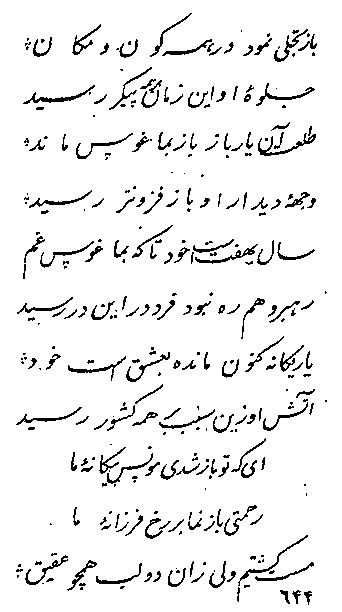 باز تجلی نمود در همه کون و مکان
جلوهٔ او این زمان پیکر رسید
طلعت آن یار باز باز بما مونس مانده
وجههٔ دیدار او باز فزونتر رسید
سال بهفت است خود تا که بما مونس غم
رهبر و هم ره نبود فرد در این در رسید
یار یگانه کنون مانده بعشق است خود
آتش او زین سبب بر همه کشور رسید
ای که تو باز شدی مونس یگانهٔ ما
رحمتی باز نما بر رخ فرزانهٔ ما
مست گشتیم ولی زان دو لب همچو عقیق
٦٤٤